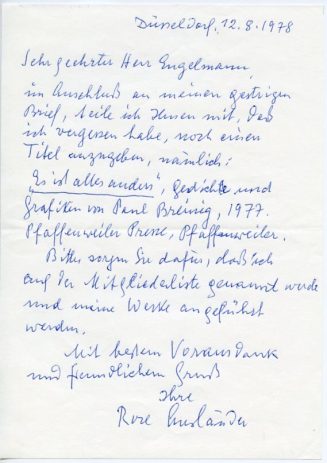 Düsseldorf, 12.8.1978
Sehr geehrter Herr Engelmann,
im Anschluß an meinen gestrigen
Brief, teile ich Ihnen mit, daß
ich vergessen habe, noch einen
Titel anzugeben, nämlich:
"Es ist alles anders", Gedichte und
Grafiken von Paul Breinig, 1977.
Pfaffenweiler Presse, Pfaffenweiler.
Bitte sorgen Sie dafür, daß ich
auf der Mitgliederliste genannt werde
und meine Werke angeführt
werden.
Mit bestem Vorausdank
und freundlichem Gruß
Ihre
Rose Ausländer